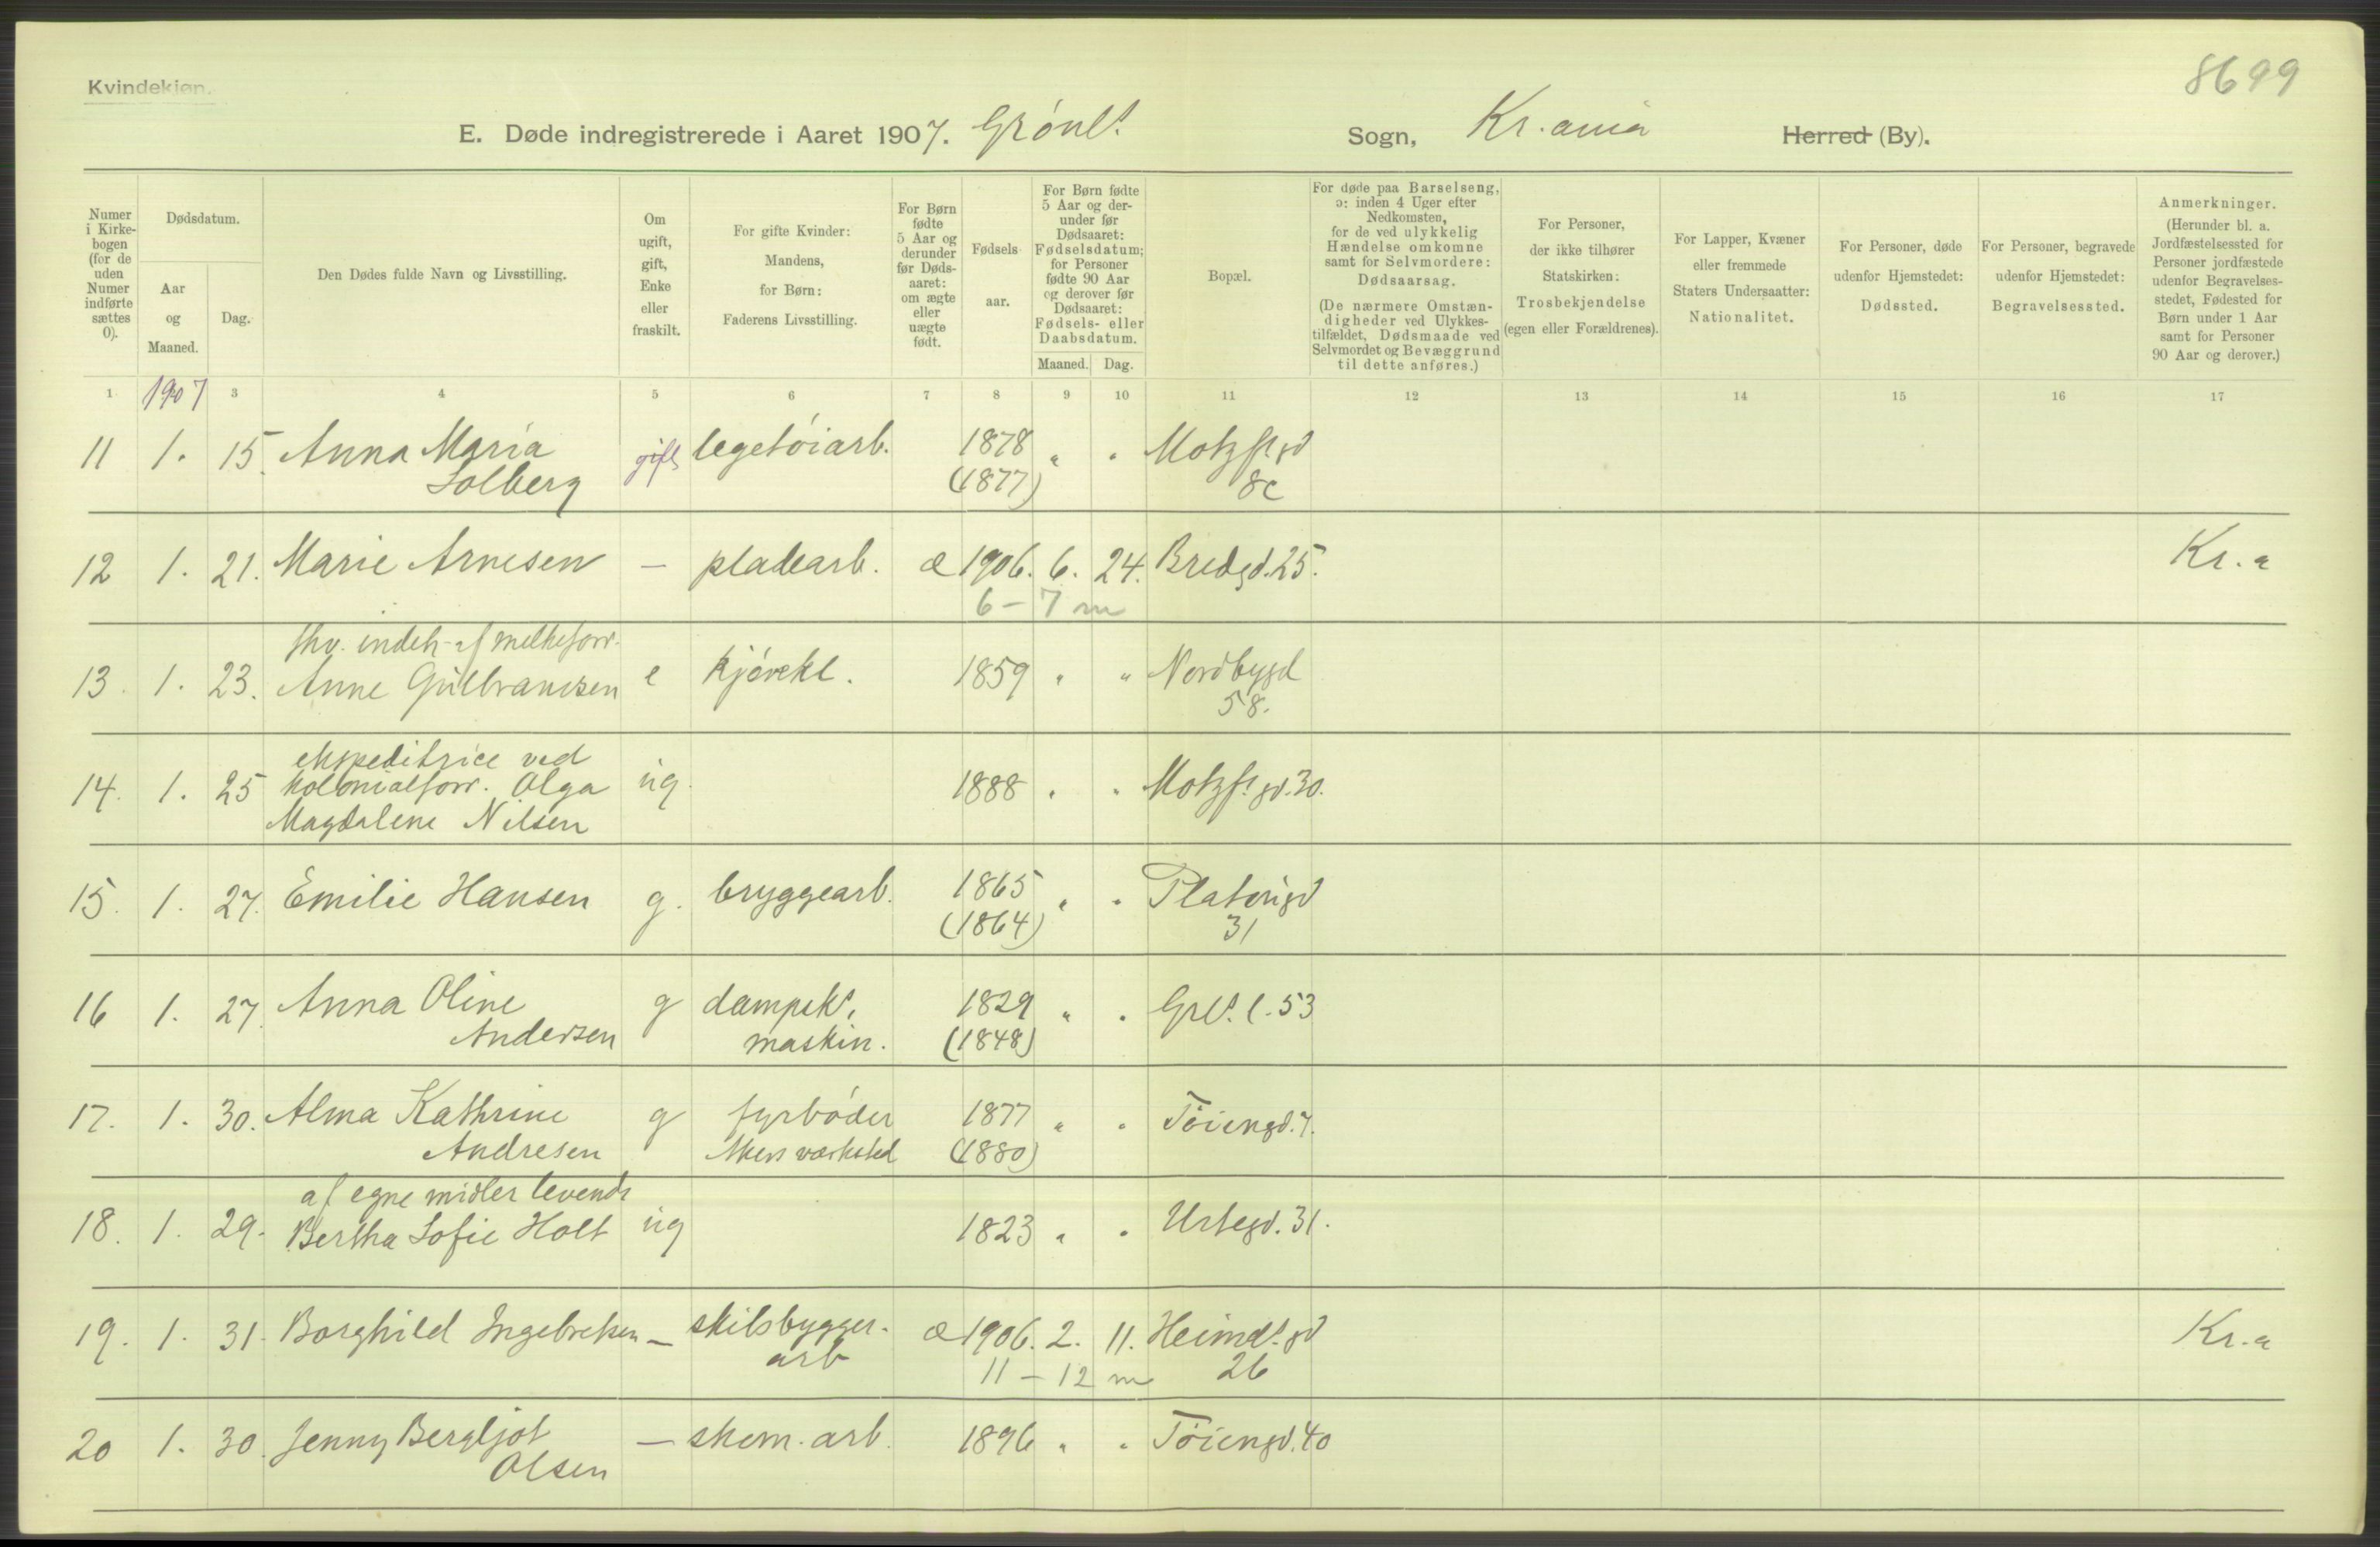 Kvindekjøn.
8699
E. Døde indregistrerede i Aaret 1907. Grönl. Sogn, Kr.ania Herred (By).
Numer i Kirkebogen (for de uden Numer indførte sættes 0).
Dødsdatum.
Aar og Maaned.
Dag.
Den Dødes fulde Navn og Livsstilling.
Om ugift, gift, Enke eller fraskilt.
For gifte Kvinder: Mandens, for Børn: Faderens Livsstilling.
For Børn fødte 5 Aar og derunder før Dødsaaret: om ægte eller uægte født.
Fødselsaar.
For Børn fødte 5 Aar og derunder før Dødsaaret: Fødselsdatum; for Personer fødte 90 Aar og derover før Dødsaaret: Fødsels- eller Daabsdatum.
Maaned. Dag.
Bopæl.
For døde paa Barselseng, ɔ: inden 4 Uger efter Nedkomsten, for de ved ulykkelig Hændelse omkomne samt for Selvmordere: Dødsaarsag.
(De nærmere Omstændigheder ved Ulykkestilfældet, Dødsmaade ved Selvmordet og Bevæggrund til dette anføres.)
For Personer, der ikke tilhører Statskirken: Trosbekjendelse (egen eller Forældrenes).
For Lapper, Kvæner eller fremmede Staters Undersaatter: Nationalitet.
For Personer, døde udenfor Hjemstedet: Dødssted.
For Personer, begravede udenfor Hjemstedet: Begravelsessted.
Anmerkninger. (Herunder bl. a. Jordfæstelsessted for Personer jordfæstede udenfor Begravelsesstedet, Fødested for Børn under 1 Aar samt for Personer 90 Aar og derover.)
1 1907 3 4 5 6 7 8 9 10 11 12 13 14 15 16 17
11 1. 15. Anna Maria gift legetöiarb. 1878 " " Motzf. gd
Solberg (1877) 8c
12 1. 21. Marie Arnesen — pladearb. æ 1906. 6. 24. Bredgd. 25. Kr.a
6 – 7 m
fhv. indeh. af melkeforr.
13. 1. 23. Anne Gulbrandsen e kjörekl. 1859 " " Nordbygd
58.
ekspeditrice ved
14. 1. 25 kolonialforr. Olga ug. 1888 " " Motzf. gd. 30.
Magdalene Nilsen
15. 1. 27. Emilie Hansen g. bryggearb. 1865 " " Platougd
(1864) 31
16 1. 27. Anna Oline g dampsk. 1829 " " Grl. l. 53
Andersen maskin. (1848)
17. 1. 30. Alma Kathrine g fyrböder 1877 " " Töiengd. 7.
Andresen Akers værksted (1880)
af egne midler levende
18. 1. 29. Bertha Sofie Holt ug 1823 " " Urtegd. 31.
19. 1. 31. Borghild Ingebretsen — skibsbygger- æ 1906. 2. 11. Heimd. gd Kr.a
arb 11 – 12 m 26
20 1. 30. Jenny Bergljot — skom. arb. 1896 " " Töiengd. 40
Olsen